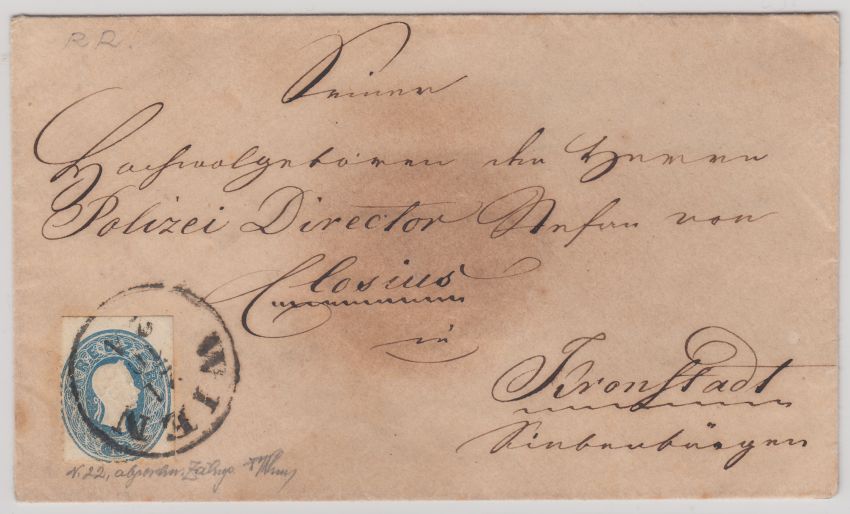 RR!
Seiner
Hochwolgeboren den Herrn
Polizei Director Stefan von
Closius
in
Kronstadt
Siebenbürgen
WIEN
N. 22,